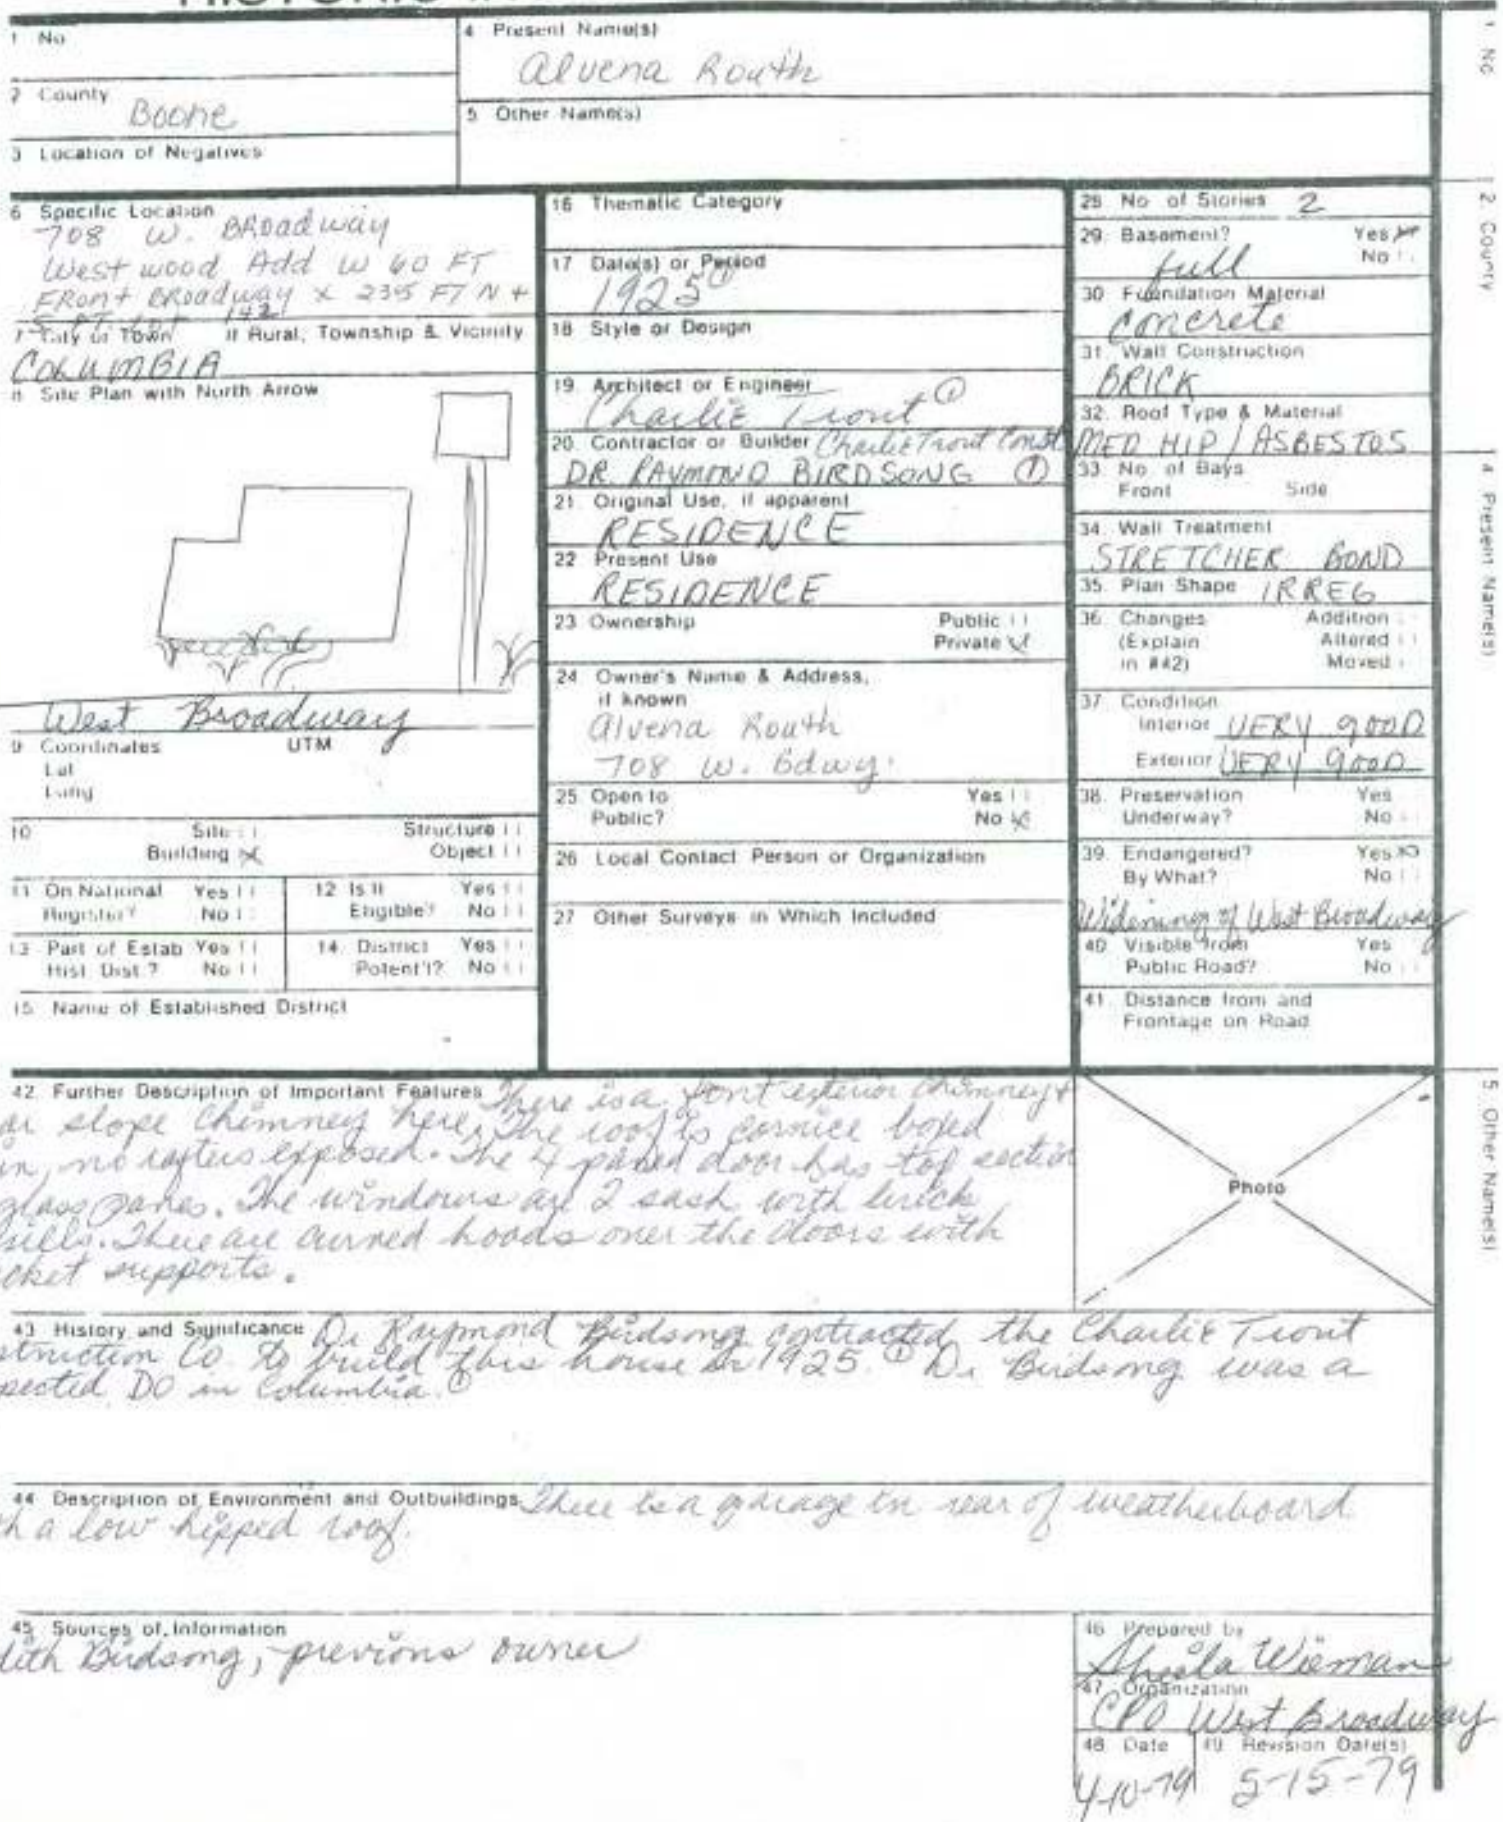 1 No
4 Present Name(s)
Alvena Routh
2 County
Boone
5 Other Name(s)
3 Location of Negatives
6 Specific Location
708 W. BROadway
West wood Add W 60 FT
FRont BROadway x 235 FT N +
142
7 City or Town If Rural, Township & Vicinity
COLUMBIA
8 Site Plan with North Arrow
West Broadway
9 Coordinates UTM
Lat
Long
10 Site Structure
Building Object
11 On National Register? Yes No
12 Is It Eligible? Yes No
13 Part of Estab Hist Dist? Yes No
14 District Potent'l? Yes No
15 Name of Established District
16 Thematic Category
17 Date(s) or Period
1925 ①
18 Style or Design
19 Architect or Engineer
Charlie Trout ①
20. Contractor or Builder Charlie Trout Const
DR RAYMOND BIRDSONG ①
21 Original Use, if apparent
RESIDENCE
22 Present Use
RESIDENCE
23 Ownership Public
Private
24 Owner's Name & Address,
if known
Alvena Routh
708 W. Bdwy.
25 Open to Yes
Public? No
26 Local Contact Person or Organization
27 Other Surveys in Which Included
28 No of Stories 2
29 Basement? Yes
No
full
30 Foundation Material
concrete
31. Wall Construction
BRICK
32. Roof Type & Material
MED HIP / ASBESTOS
33 No. of Bays
Front Side
34. Wall Treatment
STRETCHER BOND
35. Plan Shape IRREG
36. Changes Addition
(Explain Altered
in #42) Moved
37. Condition
Interior VERY gOOD
Exterior VERY gOOD
38. Preservation Yes
Underway? No
39. Endangered? Yes
By What? No
Widening of West Broadway
40 Visible from Yes
Public Road? No
41. Distance from and
Frontage on Road
42. Further Description of Important Features There is a front exterior chimney +
ar slope chimney here. The roof is cornice boxed
in, no rafters exposed. The 4 paned door has top section
glass panes. The windows are 2 sash with brick
sills. There are curved hoods over the doors with
cket supports.
Photo
43 History and Significance Dr Raymond Birdsong contracted the Charlie Trout
struction Co. to build this house in 1925. ① Dr Birdsong was a
pected DO in Columbia. ①
44 Description of Environment and Outbuildings There is a garage in rear of weatherboard
h a low hipped roof.
45 Sources of Information
dith Birdsong, previous owner
46 Prepared by
Sheila Wieman
47 Organization
CPO West Broadway
48 Date
4-10-79
49 Revision Date(s)
5-15-79
1 No
2 County
4 Present Name(s)
5 Other Name(s)